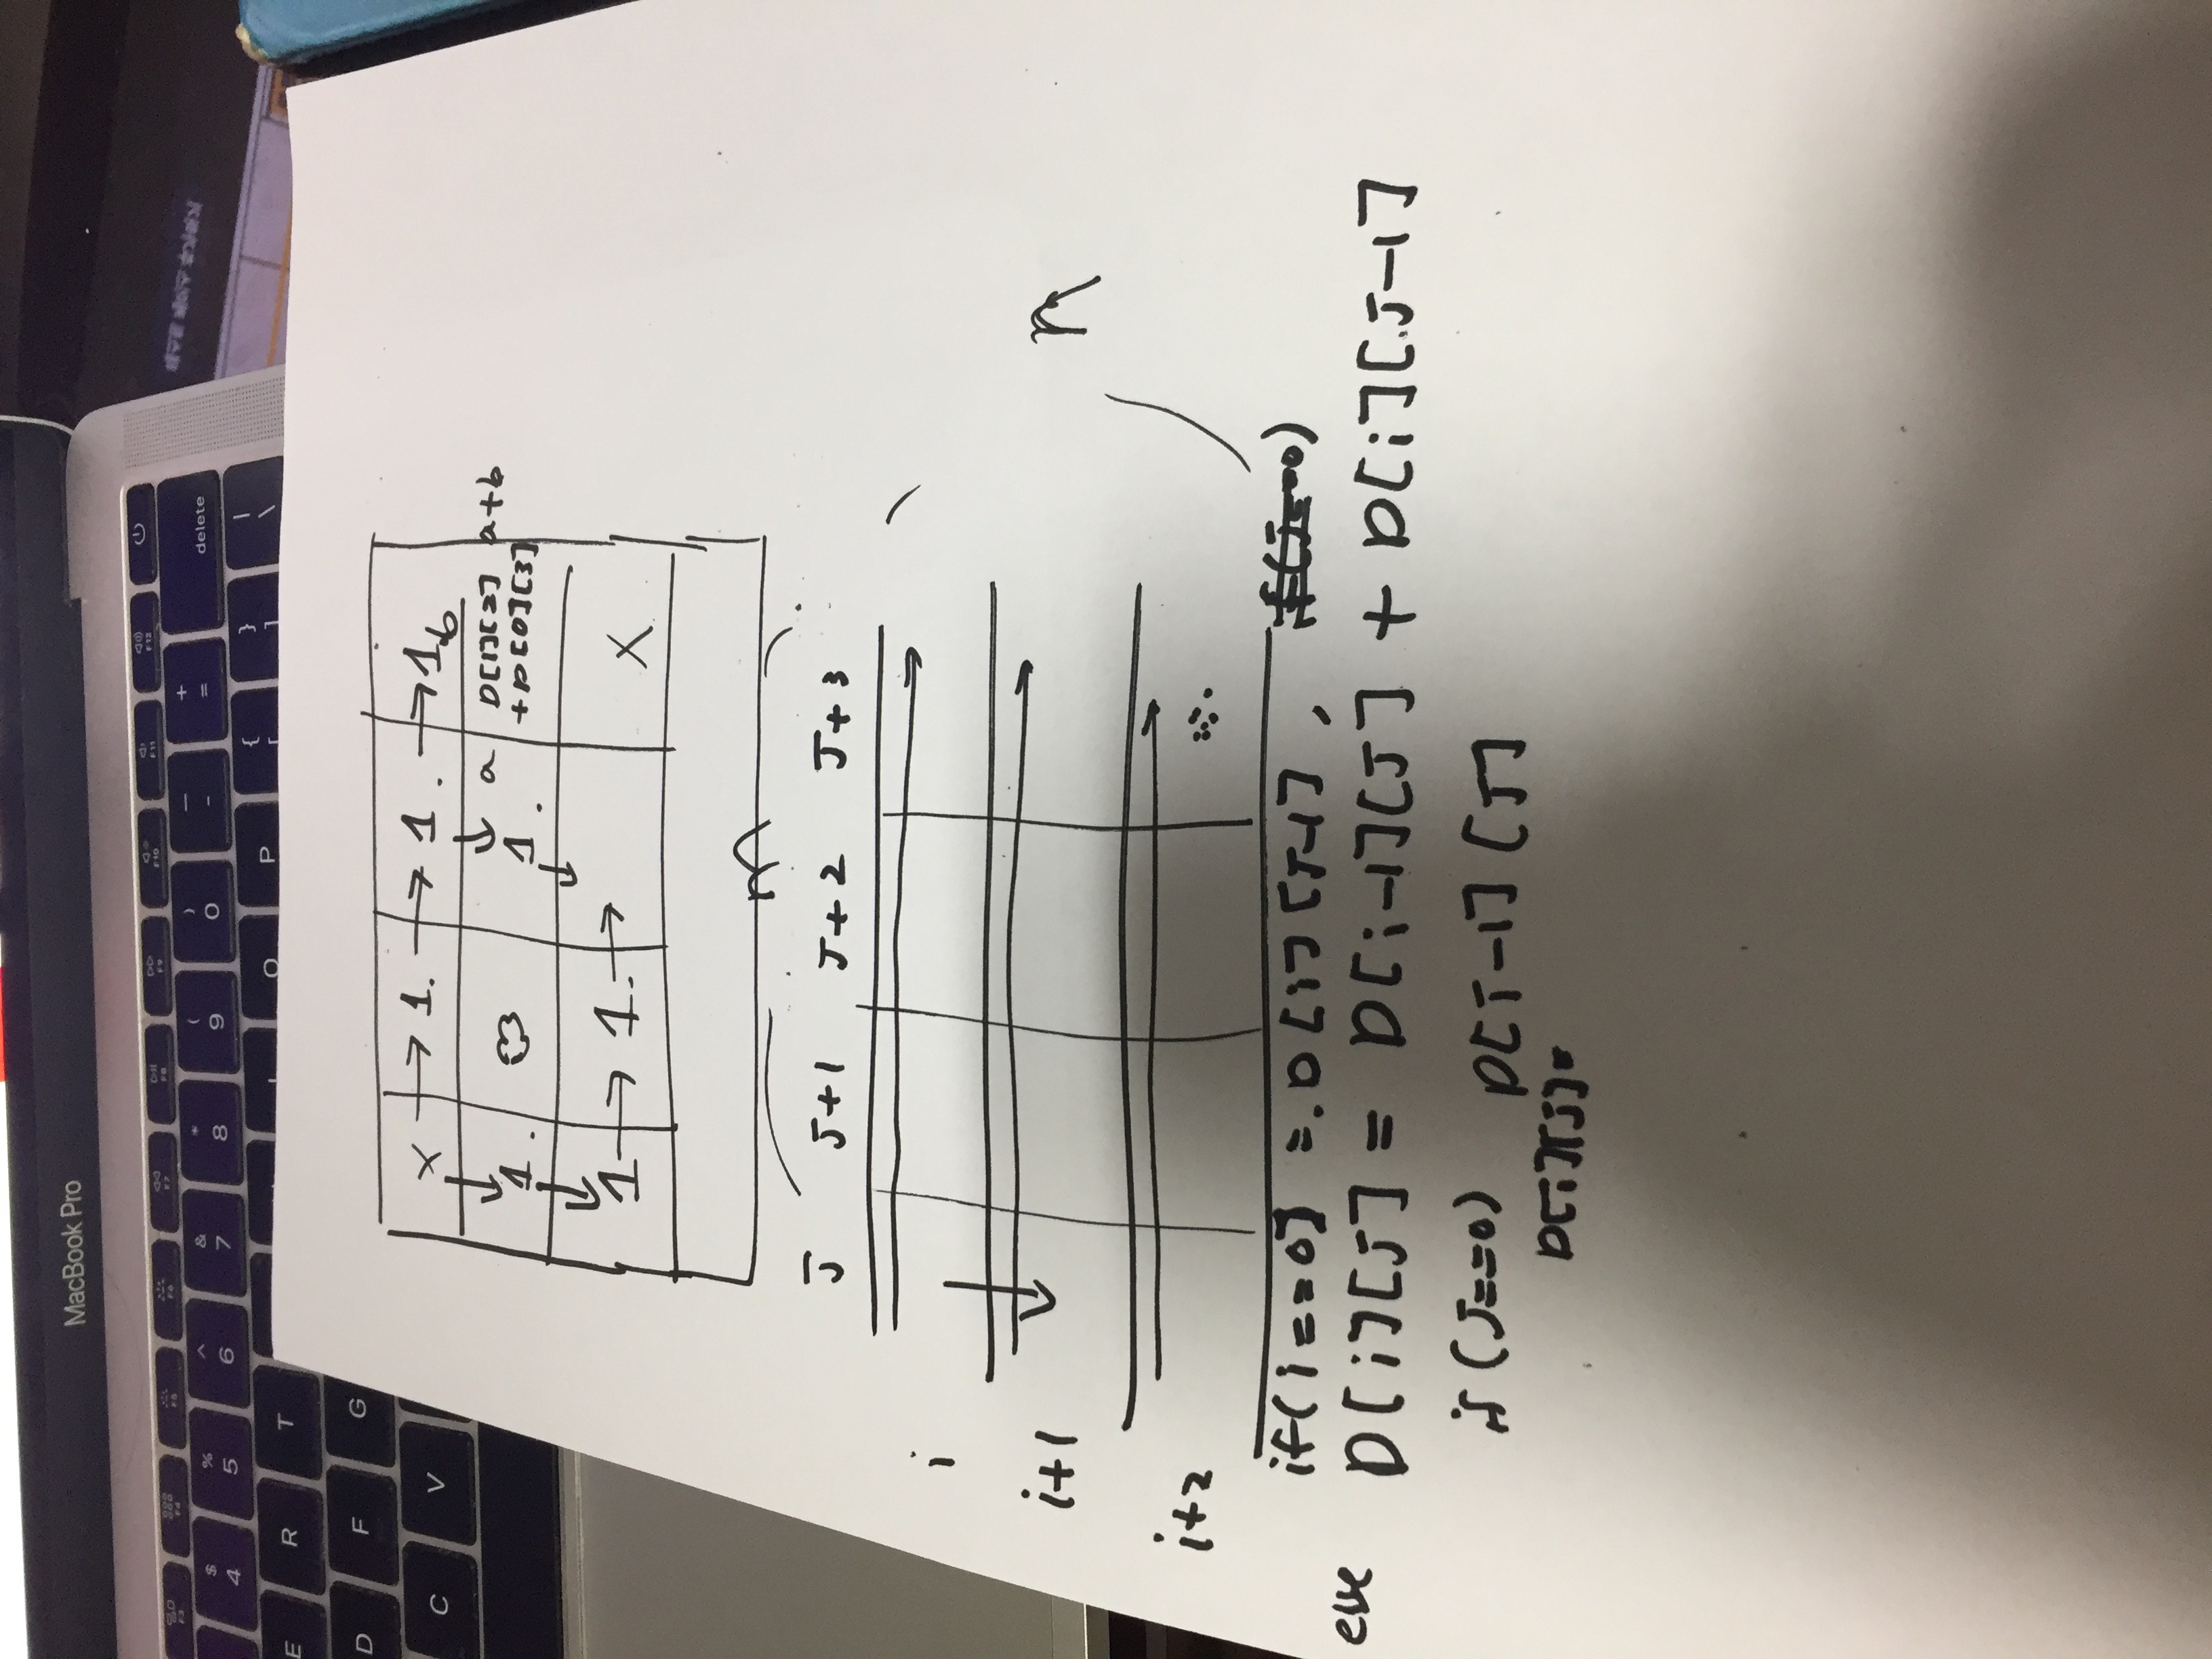 MacBook Pro
F3 F4 F5 F6 F7 F8 F9 F10 F11 F12
$ % ^ & * ( ) — +
4 5 6 7 8 9 0 - = delete
E R T O P { } |
[ ] \
D F G
C V
x → 1. → 1. → 1 b
↓ ↓ a D[1][2] a+b
1. 1. +D[0][3]
↓ ↓
1 → 1. → X
m
J J+1 J+2 J+3
i
i+1
n
i+2
if(i==0] =.D[i][J-1], if(J==0)
else D[i][J] = D[i-1][J] + D[i][J-1]
if (J==0) D[i-1][J]
D[i][J]=